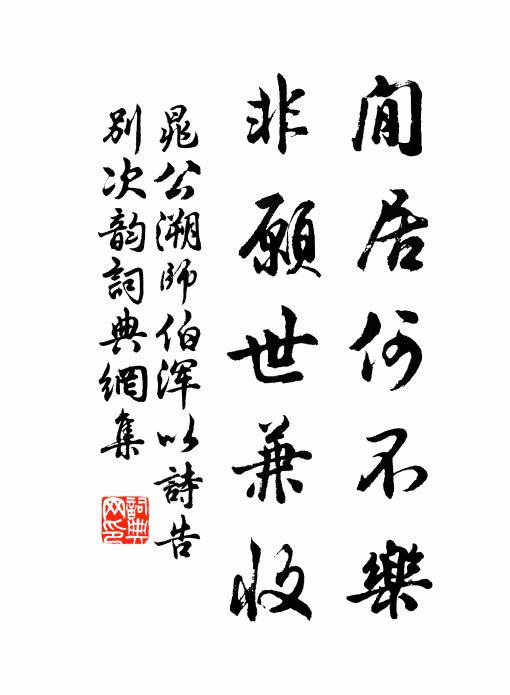 閒居何不樂
非願世兼收
晁公溯師伯渾以詩告
別次韵詞典網集
詞典網印